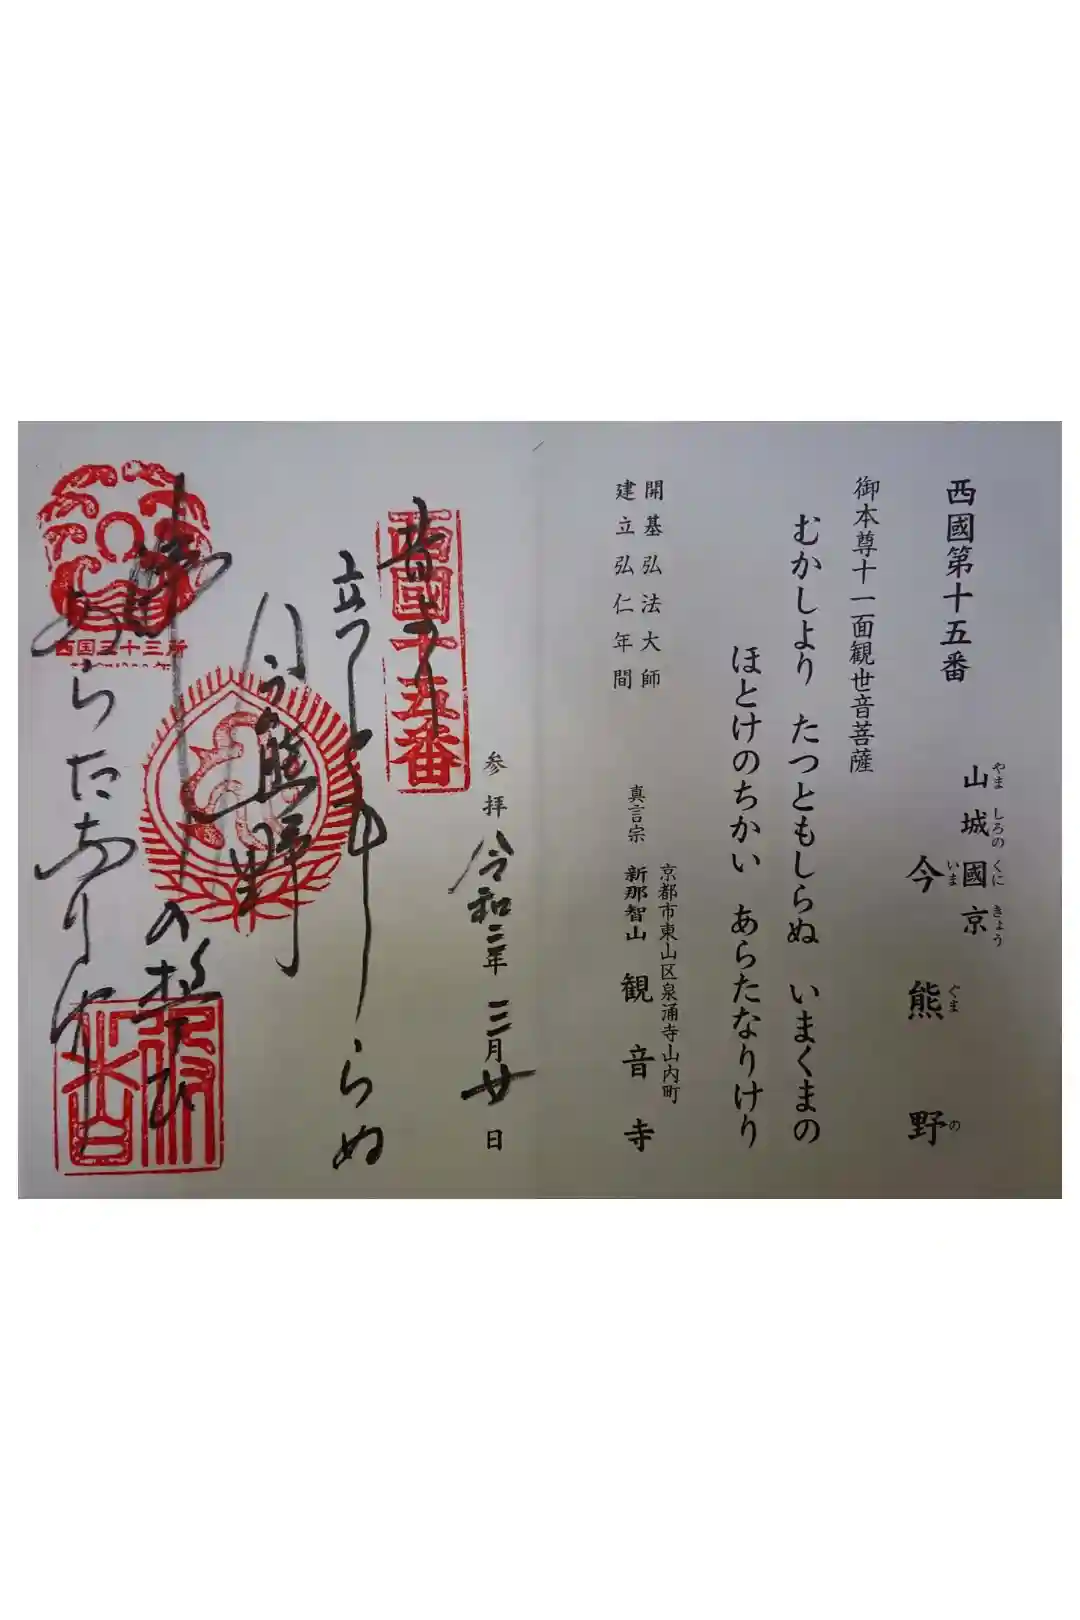 西國第十五番
山城國京
やましろのくにきょう
今熊野
いまぐまの
御本尊十一面観世音菩薩
むかしより たつともしらぬ いまくまの
ほとけのちかい あらたなりけり
開基弘法大師
建立弘仁年間
京都市東山区泉涌寺山内町
真言宗 新那智山 観音寺
参拝 令和二年 三月廿日
西國十五番
昔より
立つともしらぬ
今熊野
の誓ひ
あらたなりけり
西国三十三所